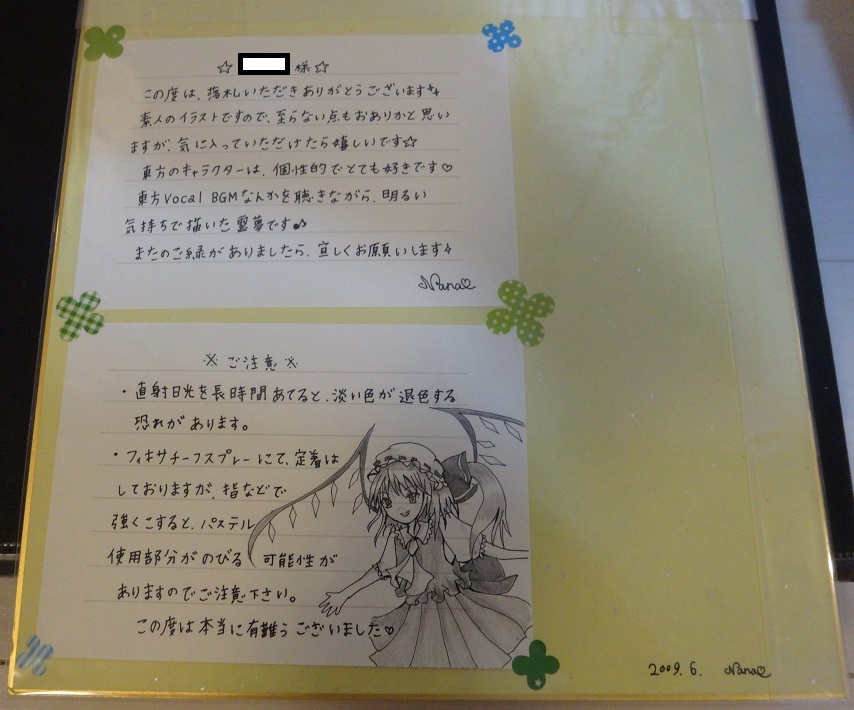 ☆ 様☆
この度は、落札いただきありがとうございます
素人のイラストですので、至らない点もおありかと思い
ますが、気に入っていただけたら嬉しいです☆
東方のキャラクターは、個性的でとても好きです♡
東方Vocal BGMなんかを聴きながら、明るい
気持ちで描いた霊夢です♪
またのご縁がありましたら、宜しくお願いします
Nana♡
※ ご注意 ※
・直射日光を長時間あてると、淡い色が退色する
恐れがあります。
・フィキサチーフスプレーにて、定着は
しておりますが、指などで
強くこすると、パステル
使用部分がのびる 可能性が
ありますのでご注意下さい。
この度は本当に有難うございました♡
2009.6. Nana♡